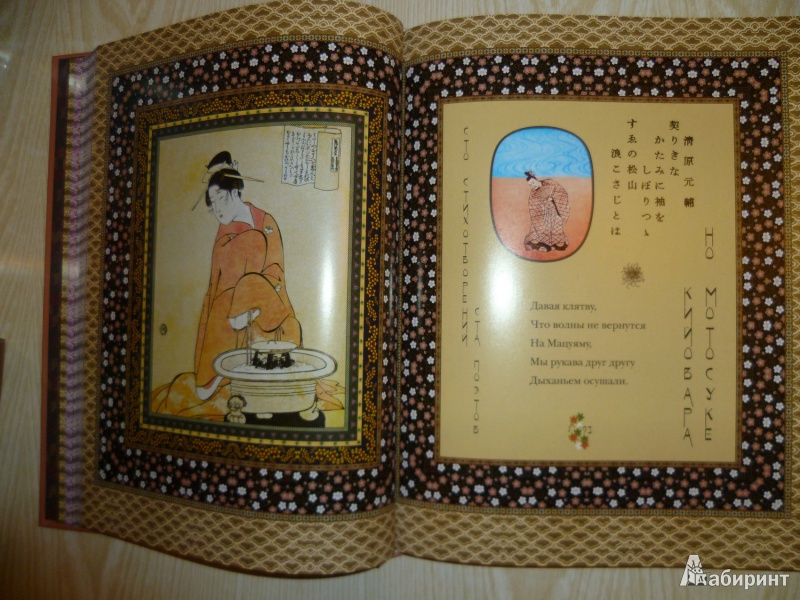 清原元輔
契りきな
かたみに袖を
しぼりつゝ
すゑの松山
浪こさじとは
СТО СТИХОТВОРЕНИЙ
СТА ПОЭТОВ
НО МОТОСУКЕ
Давая клятву,
Что волны не вернутся
На Мацуяму,
Мы рукава друг другу
Дыханьем осушали.
Лабиринт